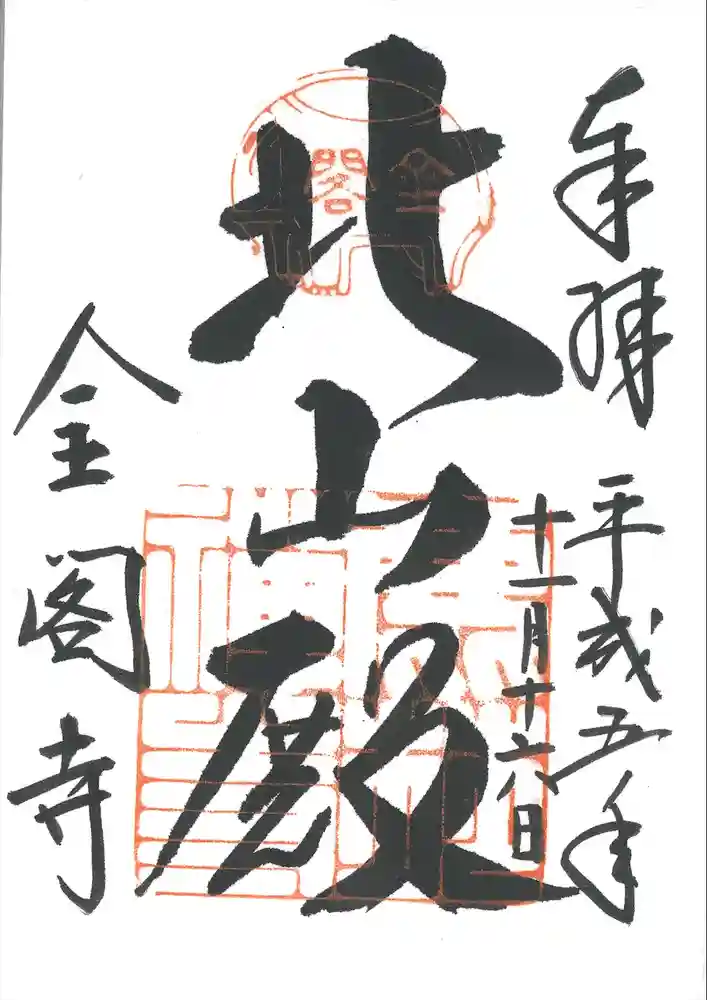 奉拝
平成五年
十一月十六日
北山殿
金閣
金閣寺